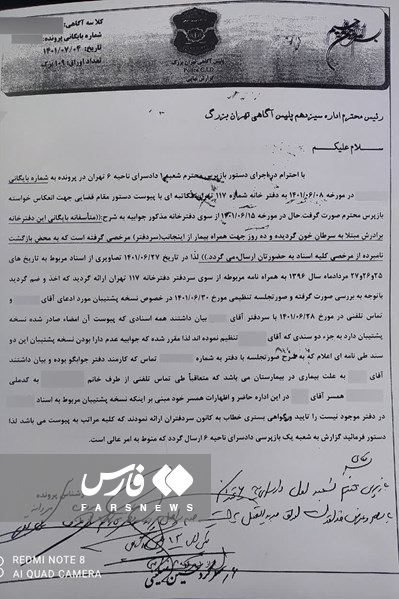 کلاسه آگاهی:
شماره بایگانی پرونده:
تاریخ: ۱۴۰۱/۰۷/۰۴
تعداد اوراق: ۱۰۹ برگ
رئیس محترم اداره سیزدهم پلیس آگاهی تهران بزرگ
سلام علیکم
با احترام در اجرای دستور بازپرس محترم شعبه ۱ دادسرای ناحیه ۶ تهران در پرونده به شماره بایگانی
در مورخه ۱۴۰۱/۰۶/۰۸ به دفتر خانه شماره ۱۱۷ تهران مکاتبه ای با پیوست دستور مقام قضایی جهت انعکاس خواسته
بازپرس محترم صورت گرفت. حال در مورخه ۱۴۰۱/۰۶/۱۵ از سوی دفترخانه مذکور جوابیه به شرح:((متأسفانه بایگانی این دفترخانه
برادرش مبتلا به سرطان خون گردیده و ده روز جهت همراه بیمار از اینجانب(سردفتر) مرخصی گرفته است که به محض بازگشت
نامبرده از مرخصی کلیه اسناد به حضورتان ارسال می گردد.)) لذا در تاریخ ۱۴۰۱/۰۶/۲۷ تصاویری از اسناد مربوط به تاریخ های
۲۵و۲۶و۲۷ مردادماه سال ۱۳۹۶ به همراه نامه مربوطه از سوی سردفتر دفترخانه ۱۱۷ تهران ارائه گردید که اخذ و ضم گردید
باتوجه به بررسی صورت گرفته و صورتجلسه تنظیمی مورخ ۱۴۰۱/۰۶/۳۰ در خصوص نسخه پشتیبان مورد ادعای آقای و
تماس تلفنی در مورخ ۱۴۰۱/۰۶/۲۸ با سردفتر آقای بیان داشتند همه اسنادی که پیوست آن امضاء صادر شده نسخه
پشتیبان دارد به جزء دو سندی که آقای تنظیم نموده اند لذا مقرر شده که جوابیه عدم دارا بودن نسخه پشتیبان این دو
سند طی نامه ای اعلام که به طرح صورتجلسه با دفتر به شماره تماس که کارمند دفتر جوابگو بوده و بیان داشتند
آقای به علت بیماری در بیمارستان می باشد که متعاقباً طی تماس تلفنی از طرف خانم به کدملی
همسر آقای در این اداره حاضر و اظهارات همسر خود مبنی بر اینکه نسخه پشتیبان مربوط به اسناد
در دفتر موجود نیست را تایید و گواهی بستری خطاب به کانون سردفتران ارائه نمودند که کلیه مراتب به پیوست می باشد لذا
دستور فرمائید گزارش به شعبه یک بازپرسی دادسرای ناحیه ۶ ارسال گردد که منوط به امر عالی است.
فارس
FARSNEWS
REDMI NOTE 8
AI QUAD CAMERA